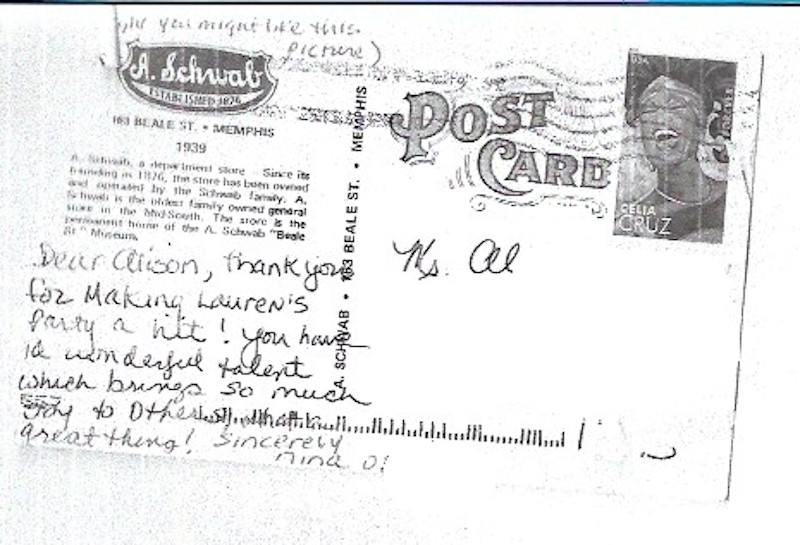 you might like this
picture)
A. Schwab
ESTABLISHED 1876
163 BEALE ST. • MEMPHIS
1939
A. Schwab, a department store Since its
founding in 1876, the store has been owned
and operated by the Schwab family. A.
Schwab is the oldest family owned general
store in the Mid-South. The store is the
permanent home of the A. Schwab "Beale
St." Museum.
Dear Alison, thank you
for Making Lauren's
Party a hit! you have
a wonderful talent
which brings so much
Joy to Others, what a
great thing! Sincerely
Nina O!
A. SCHWAB • 163 BEALE ST. • MEMPHIS
POST
CARD
USA
FOREVER
CELIA
CRUZ
Ms. Al